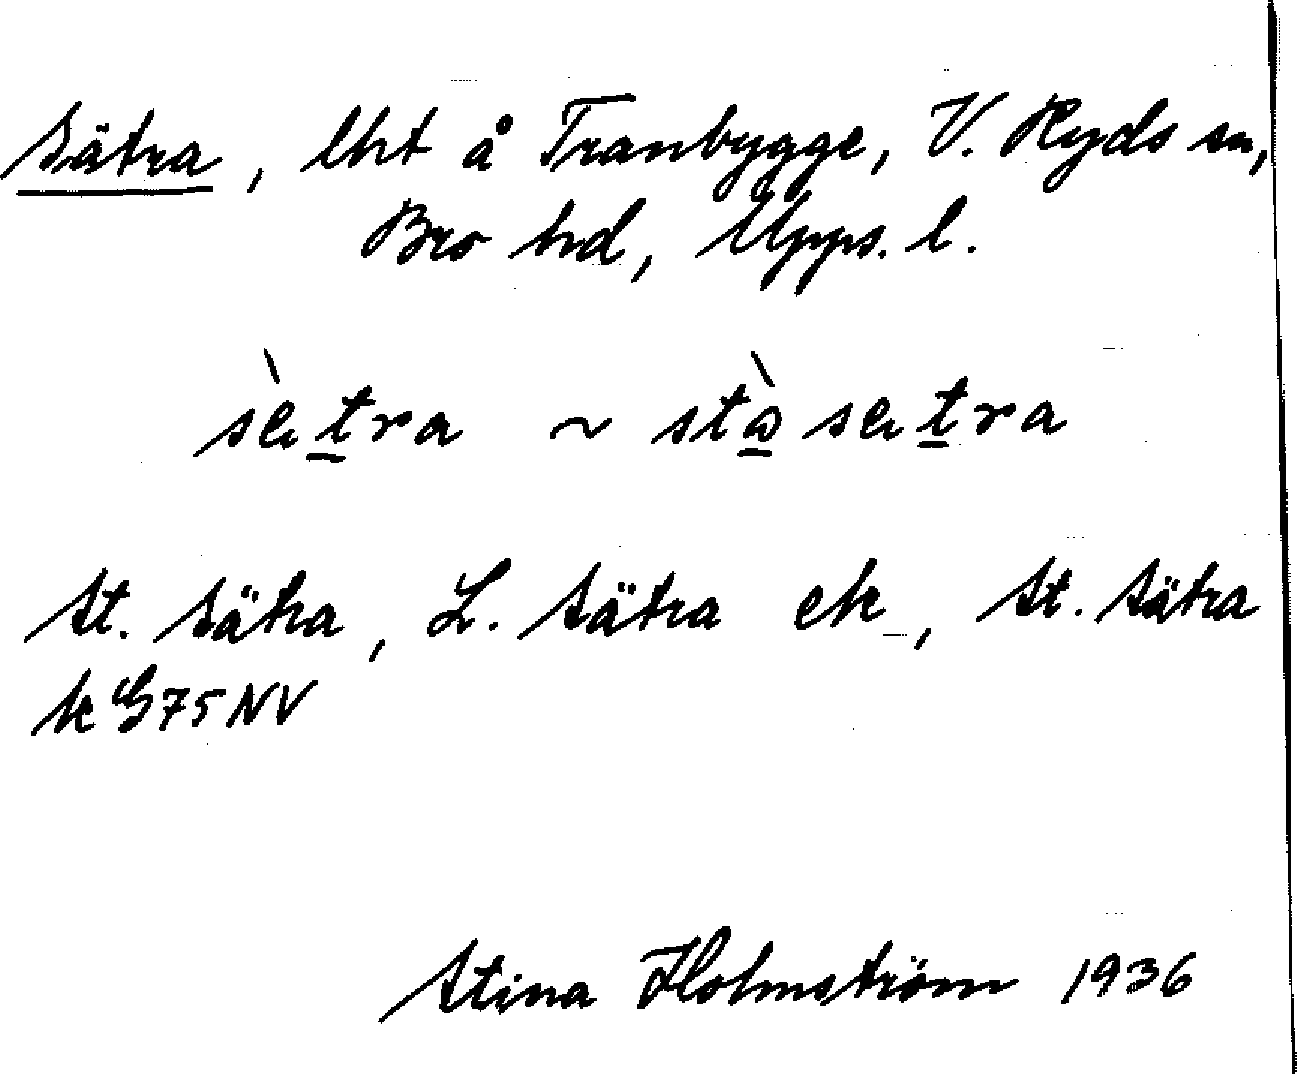 Sätra, lht å Tranbygge, V. Ryds sn,
Bro hd, Upps. l.
sè̀tra ~ stɷ̀ setra
St. Sätra, L. Sätra ek, St. Sätra
k G75NV
Stina Holmström 1936